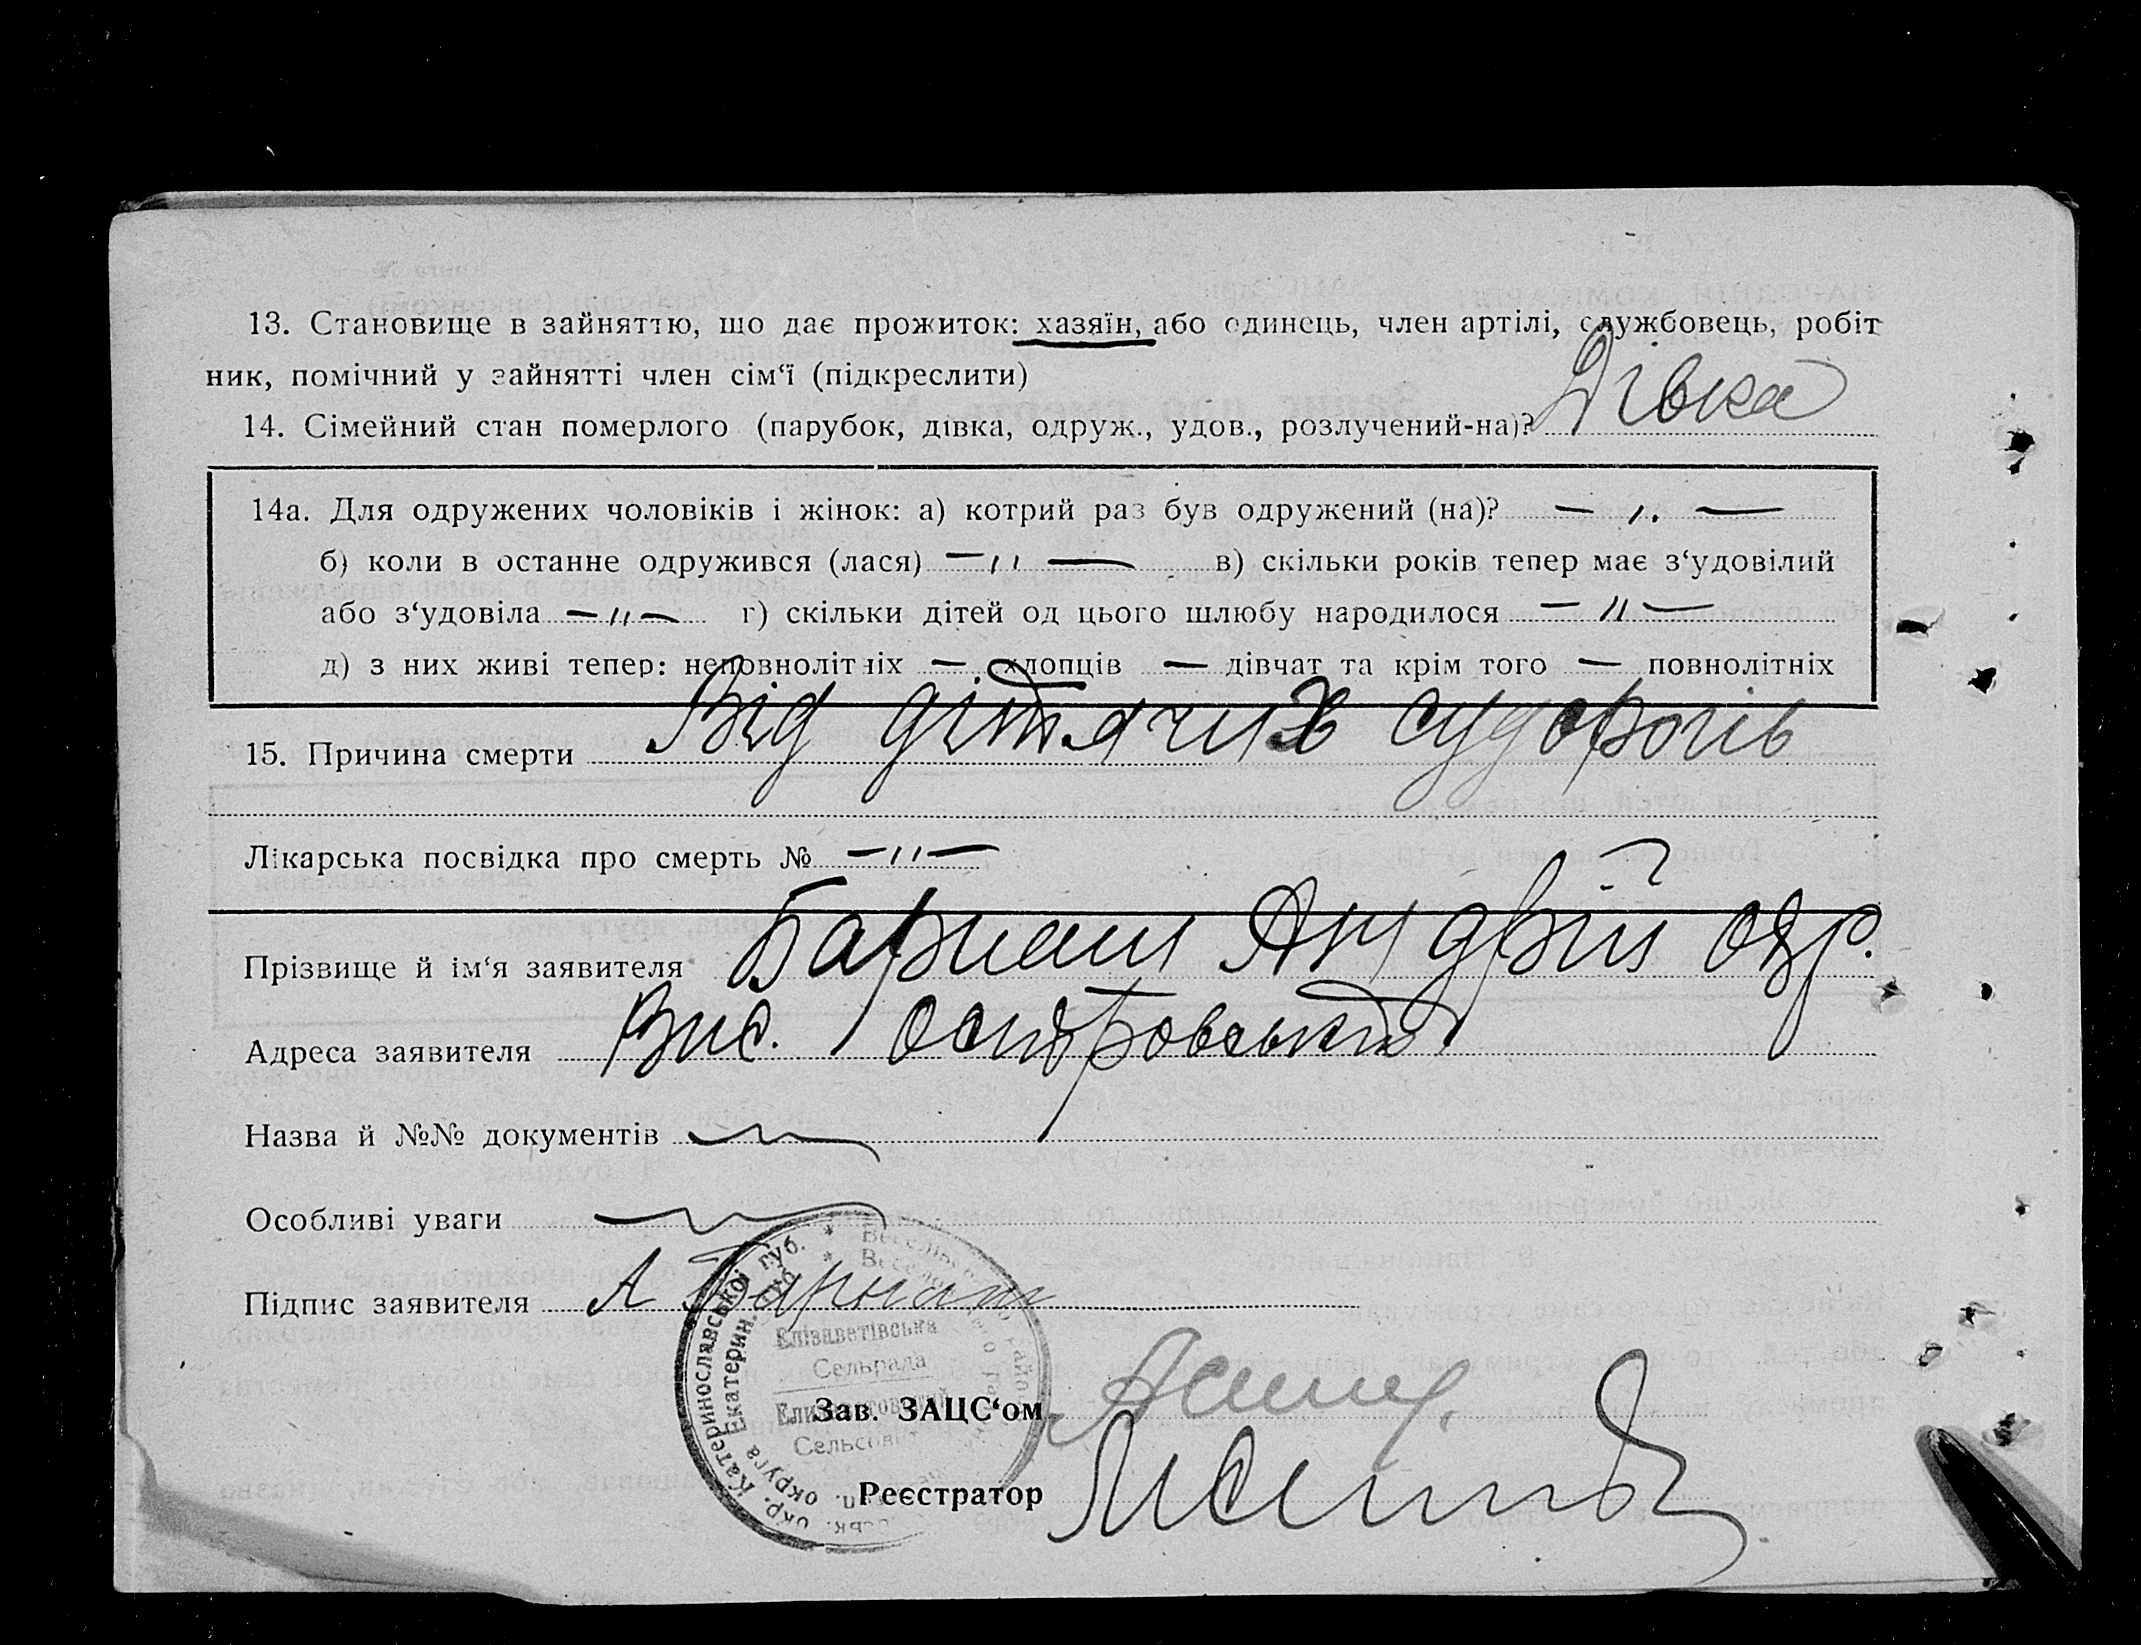 13. Становище в зайняттю, що дає прожиток: хазяїн, або одинець, член артілі, службовець, робіт
ник, помічний у зайнятті член сім‘ї (підкреслити)
14. Сімейний стан померлого (парубок, дівка, одруж., удов., розлучений-на)? Дівка
14а. Для одружених чоловіків і жінок: а) котрий раз був одружений (на)? — " —
б) коли в останне одружився (лася) — " — в) скільки років тепер має з‘удовілий
або з‘удовіла — " — г) скільки дітей од цього шлюбу народилося — " —
д) з них живі тепер: неповнолітніх — хлопців — дівчат та крім того — повнолітніх
15. Причина смерти Від дітячих судорогів
Лікарська посвідка про смерть № — " —
Прізвище й ім‘я заявителя Барнаш Андрій
Адреса заявителя Вис. Островський
Назва й №№ документів
Особливі уваги
Підпис заявителя А
окр. Катеринославської губ. * Веселівського району
округа Екатерин. губ. * Веселовского
Елізаветівська
Сельрада
Елизаветовский
Сельсовет
Зав. ЗАЦС‘ом
Реєстратор